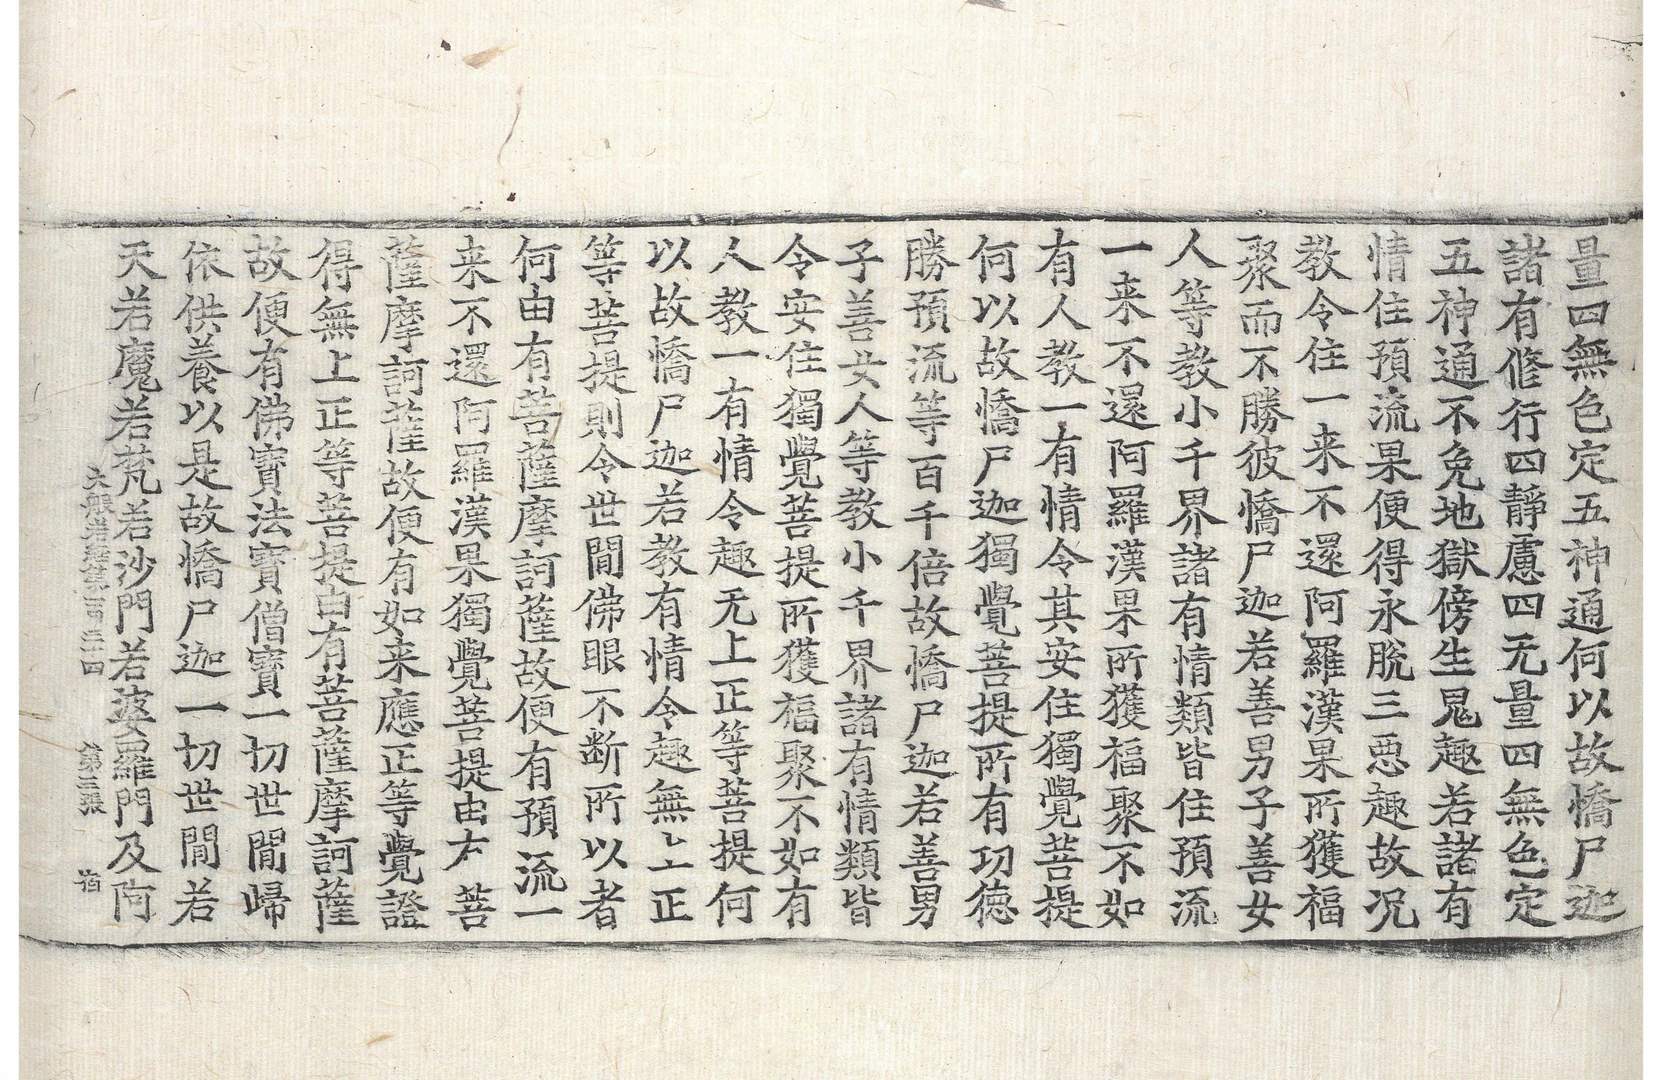 量四無色定五神通何以故憍尸迦
諸有修行四靜慮四无量四無色定
五神通不免地獄傍生鬼趣若諸有
情住預流果便得永脫三惡趣故况
教令住一来不還阿羅漢果所獲福
聚而不勝彼憍尸迦若善男子善女
人等教小千界諸有情類皆住預流
一来不還阿羅漢果所獲福聚不如
有人教一有情令其安住獨覺菩提
何以故憍尸迦獨覺菩提所有功德
勝預流等百千倍故憍尸迦若善男
子善女人等教小千界諸有情類皆
令安住獨覺菩提所獲福聚不如有
人教一有情令趣无上正等菩提何
以故憍尸迦若教有情令趣無上正
等菩提則令世間佛眼不断所以者
何由有菩薩摩訶薩故便有預流一
来不還阿羅漢果獨覺菩提由有菩
薩摩訶薩故便有如来應正等覺證
得無上正等菩提由有菩薩摩訶薩
故便有佛寶法寶僧寶一切世間歸
依供養以是故憍尸迦一切世間若
天若魔若梵若沙門若婆羅門及阿
大般若經第一百三十四 第三張 宿